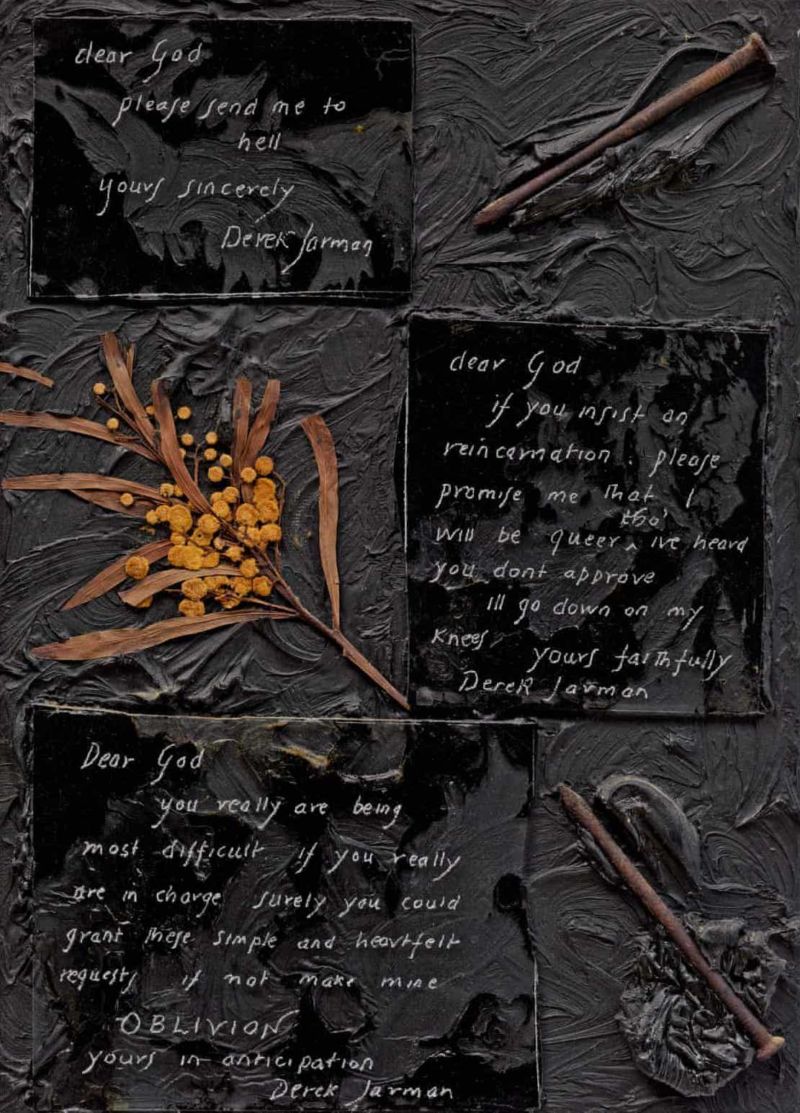 dear God
please send me to
hell
yours sincerely
Derek Jarman
dear God
if you insist on
reincarnation . please
promise me that I
will be queer tho' ive heard
you dont approve
Ill go down on my
knees yours faithfully
Derek Jarman
Dear God
you really are being
most difficult. if you really
are in charge surely you could
grant these simple and heartfelt
requests if not make mine
OBLIVION
yours in anticipation
Derek Jarman